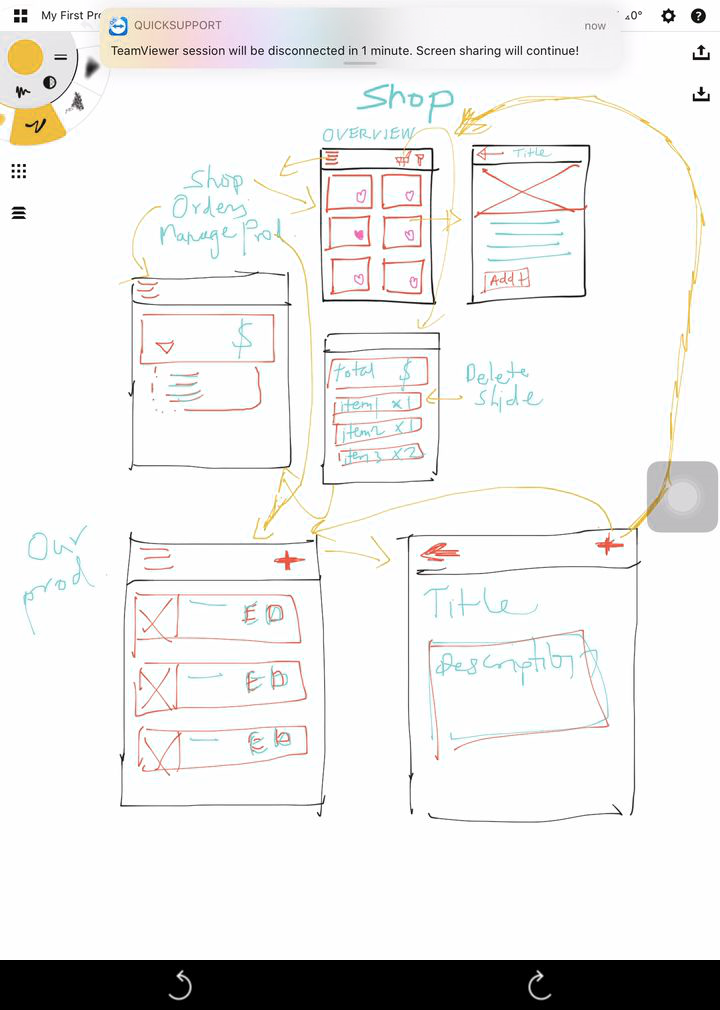 My First Pr
QUICKSUPPORT
now
TeamViewer session will be disconnected in 1 minute. Screen sharing will continue!
0°
Shop
OVERVIEW
Title
Shop
Orders
Manage Prod.
Add +
$
Total $
item1 x1
item2 x1
item3 x2
Delete
Slide
Our
prod
E D
E D
E D
Title
Description